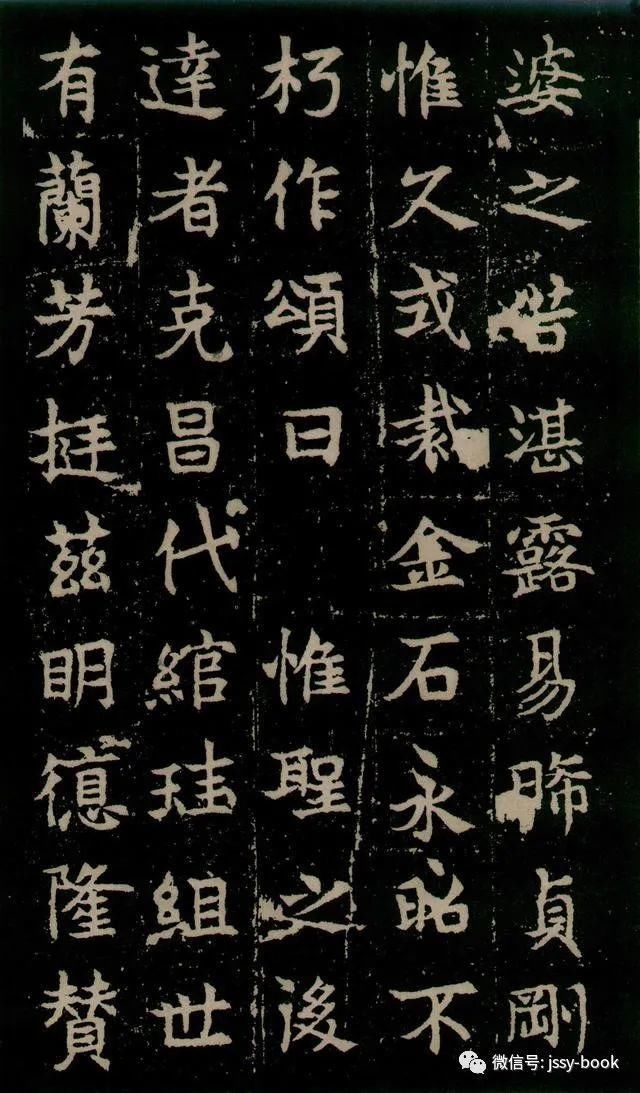 婆之晧湛露易晞貞剛
惟久式裁金石永昭不
朽作頌曰 惟聖之後
達者克昌代綰珪組世
有蘭芳挺茲明德隆贊
微信号: jssy-book